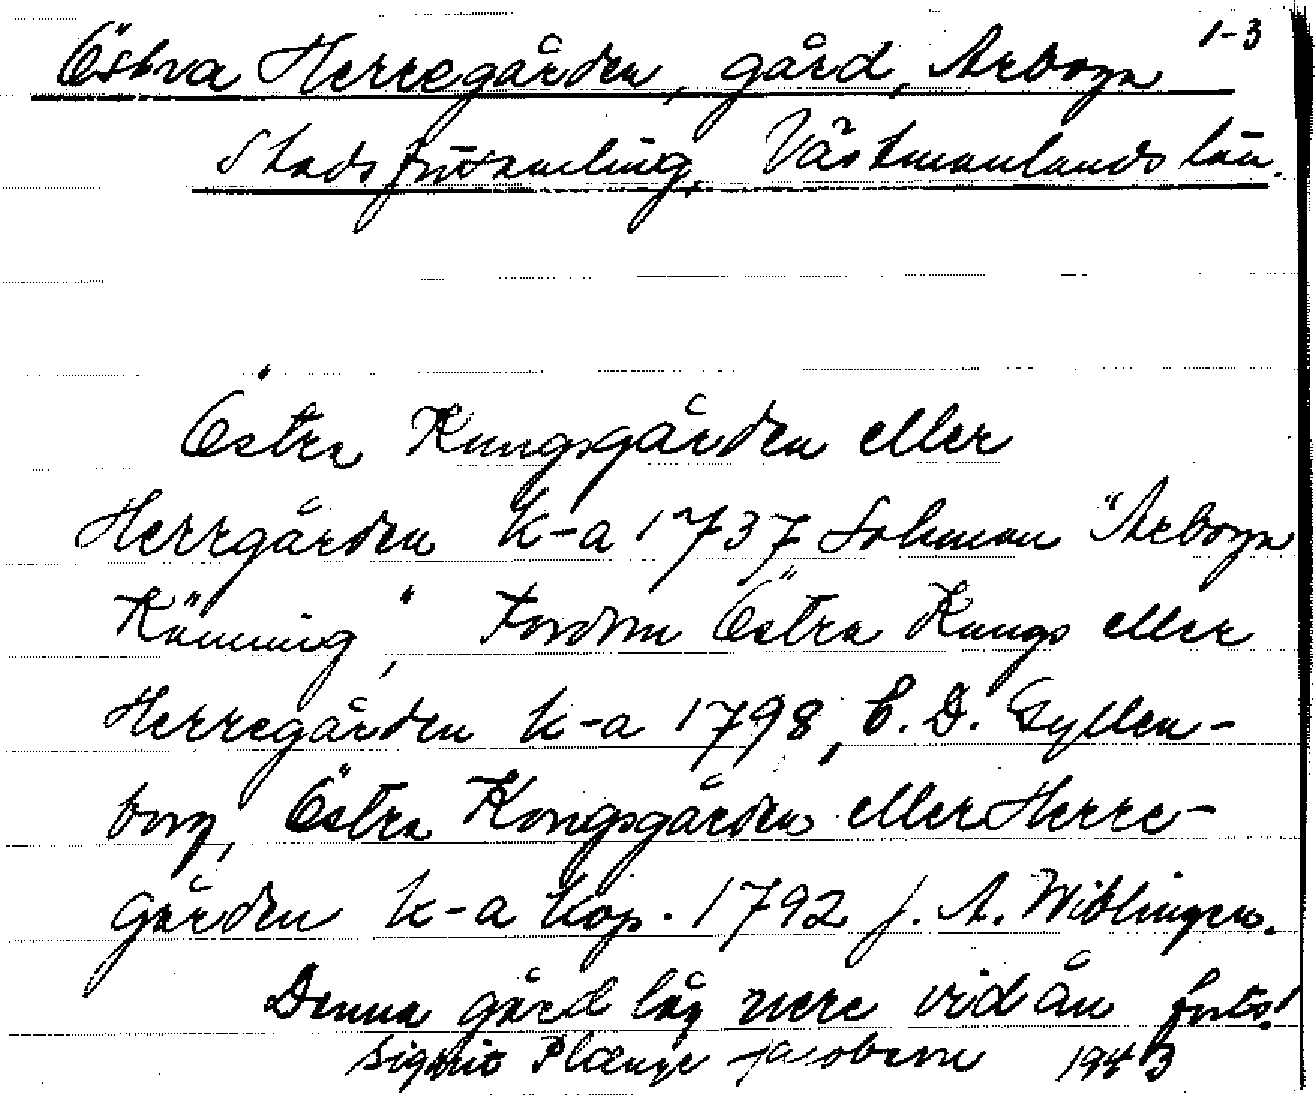 1-3
Östra Herregården, gård, Arboga
Stadsförsamling, Västmanlands län.
Östra Kungsgården eller
Herrgården k-a 1737 Sohman "Arboga
Känning", Fordom Östra Kungs eller
Herregården k-a 1798, C. D. Gyllen-
borg, Östra Kongsgården eller Herre-
gården k-a kop. 1792 J. A. Wiblingen.
Denna gård låg nere vid ån forts!
Sigrid Plænge Jacobson 1943